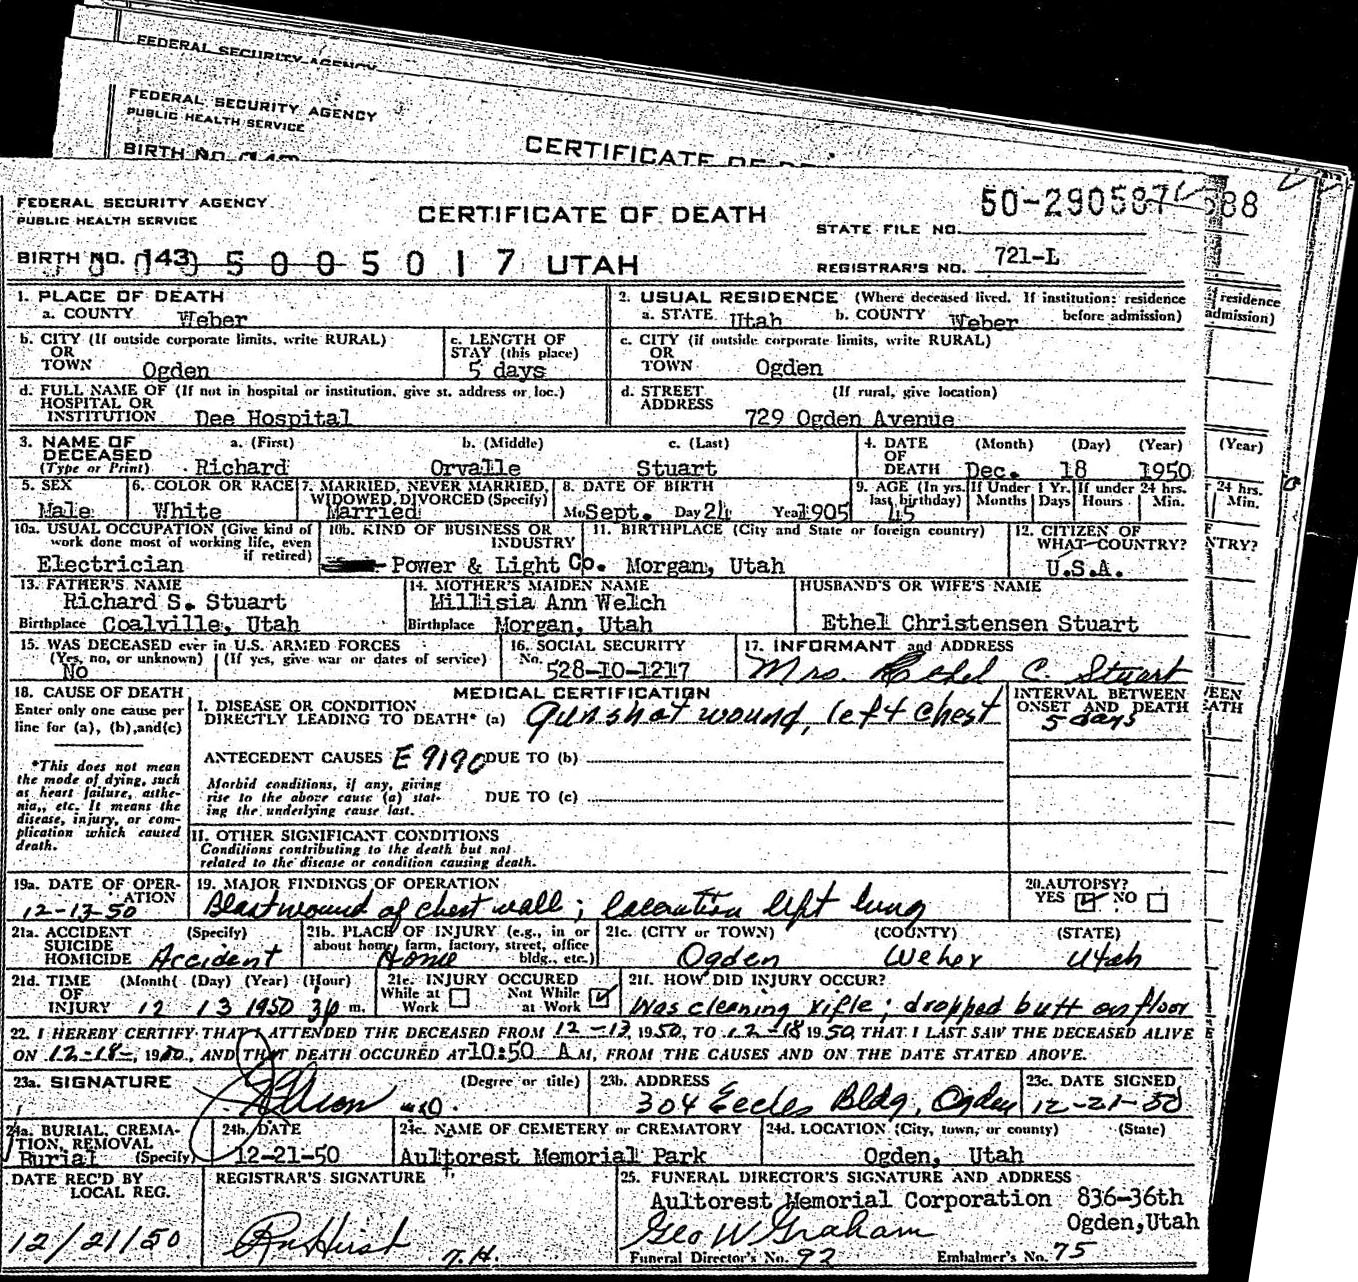 FEDERAL SECURITY AGENCY
FEDERAL SECURITY AGENCY
PUBLIC HEALTH SERVICE
CERTIFICATE OF
BIRTH NO.
FEDERAL SECURITY AGENCY
PUBLIC HEALTH SERVICE
CERTIFICATE OF DEATH
50-290587 588
STATE FILE NO.
BIRTH NO. 143 5 0 0 5 0 1 7 UTAH
REGISTRAR'S NO. 721-L
1. PLACE OF DEATH
a. COUNTY Weber
2. USUAL RESIDENCE (Where deceased lived. If institution: residence before admission)
a. STATE Utah b. COUNTY Weber
residence
admission)
b. CITY (If outside corporate limits, write RURAL)
OR
TOWN Ogden
c. LENGTH OF
STAY (this place)
5 days
c. CITY (if outside corporate limits, write RURAL)
OR
TOWN Ogden
d. FULL NAME OF (If not in hospital or institution, give st. address or loc.)
HOSPITAL OR
INSTITUTION Dee Hospital
d. STREET (If rural, give location)
ADDRESS 729 Ogden Avenue
3. NAME OF DECEASED
(Type or Print)
a. (First) b. (Middle) c. (Last)
Richard Orvalle Stuart
4. DATE OF DEATH (Month) (Day) (Year)
Dec. 18 1950
(Year)
5. SEX
Male
6. COLOR OR RACE
White
7. MARRIED, NEVER MARRIED,
WIDOWED, DIVORCED (Specify)
Married
8. DATE OF BIRTH
Mo Sept. Day 24 Year 1905
9. AGE (In yrs. last birthday) If Under 1 Yr. If under 24 hrs.
Months Days Hours Min.
45
24 hrs.
Min.
10a. USUAL OCCUPATION (Give kind of
work done most of working life, even
if retired)
Electrician
10b. KIND OF BUSINESS OR
INDUSTRY
Power & Light Co.
11. BIRTHPLACE (City and State or foreign country)
Morgan, Utah
12. CITIZEN OF
WHAT COUNTRY?
U.S.A.
NTRY?
13. FATHER'S NAME
Richard S. Stuart
Birthplace Coalville, Utah
14. MOTHER'S MAIDEN NAME
Millisia Ann Welch
Birthplace Morgan, Utah
HUSBAND'S OR WIFE'S NAME
Ethel Christensen Stuart
15. WAS DECEASED ever in U.S. ARMED FORCES
(Yes, no, or unknown) (If yes, give war or dates of service)
No
16. SOCIAL SECURITY
No. 528-10-1217
17. INFORMANT and ADDRESS
Mrs. Ethel C. Stuart
18. CAUSE OF DEATH
Enter only one cause per
line for (a), (b),and(c)
*This does not mean
the mode of dying, such
as heart failure, asthe-
nia,, etc. It means the
disease, injury, or com-
plication which caused
death.
MEDICAL CERTIFICATION
I. DISEASE OR CONDITION
DIRECTLY LEADING TO DEATH* (a) Gunshot wound, left chest
INTERVAL BETWEEN
ONSET AND DEATH
5 days
EEN
EATH
ANTECEDENT CAUSES E 9190 DUE TO (b)
Morbid conditions, if any, giving
rise to the above cause (a) stat-
ing the underlying cause last.
DUE TO (c)
II. OTHER SIGNIFICANT CONDITIONS
Conditions contributing to the death but not
related to the disease or condition causing death.
19a. DATE OF OPER-
ATION
12-13-50
19. MAJOR FINDINGS OF OPERATION
Blast wound of chest wall; laceration left lung
20. AUTOPSY?
YES NO
21a. ACCIDENT (Specify)
SUICIDE
HOMICIDE Accident
21b. PLACE OF INJURY (e.g., in or
about home, farm, factory, street, office
bldg., etc.)
Home
21c. (CITY or TOWN) (COUNTY) (STATE)
Ogden Weber Utah
21d. TIME (Month) (Day) (Year) (Hour)
OF
INJURY 12 13 1950 3p m.
21e. INJURY OCCURED
While at Work Not While at Work
21f. HOW DID INJURY OCCUR?
Was cleaning rifle; dropped butt on floor
22. I HEREBY CERTIFY THAT I ATTENDED THE DECEASED FROM 12-13, 1950, TO 12-18 1950, THAT I LAST SAW THE DECEASED ALIVE
ON 12-18-, 1950., AND THAT DEATH OCCURED AT 10:50 A M, FROM THE CAUSES AND ON THE DATE STATED ABOVE.
23a. SIGNATURE (Degree or title)
23b. ADDRESS
304 Eccles Bldg, Ogden
23c. DATE SIGNED
12-21-50
24a. BURIAL, CREMA-
TION, REMOVAL
Burial (Specify)
24b. DATE
12-21-50
24c. NAME OF CEMETERY or CREMATORY
Aultorest Memorial Park
24d. LOCATION (City, town, or county) (State)
Ogden, Utah
DATE REC'D BY
LOCAL REG.
12/21/50
REGISTRAR'S SIGNATURE
T.H.
25. FUNERAL DIRECTOR'S SIGNATURE AND ADDRESS
Aultorest Memorial Corporation 836-36th
Ogden,Utah
Geo W Graham
Funeral Director's No. 92 Embalmer's No. 75